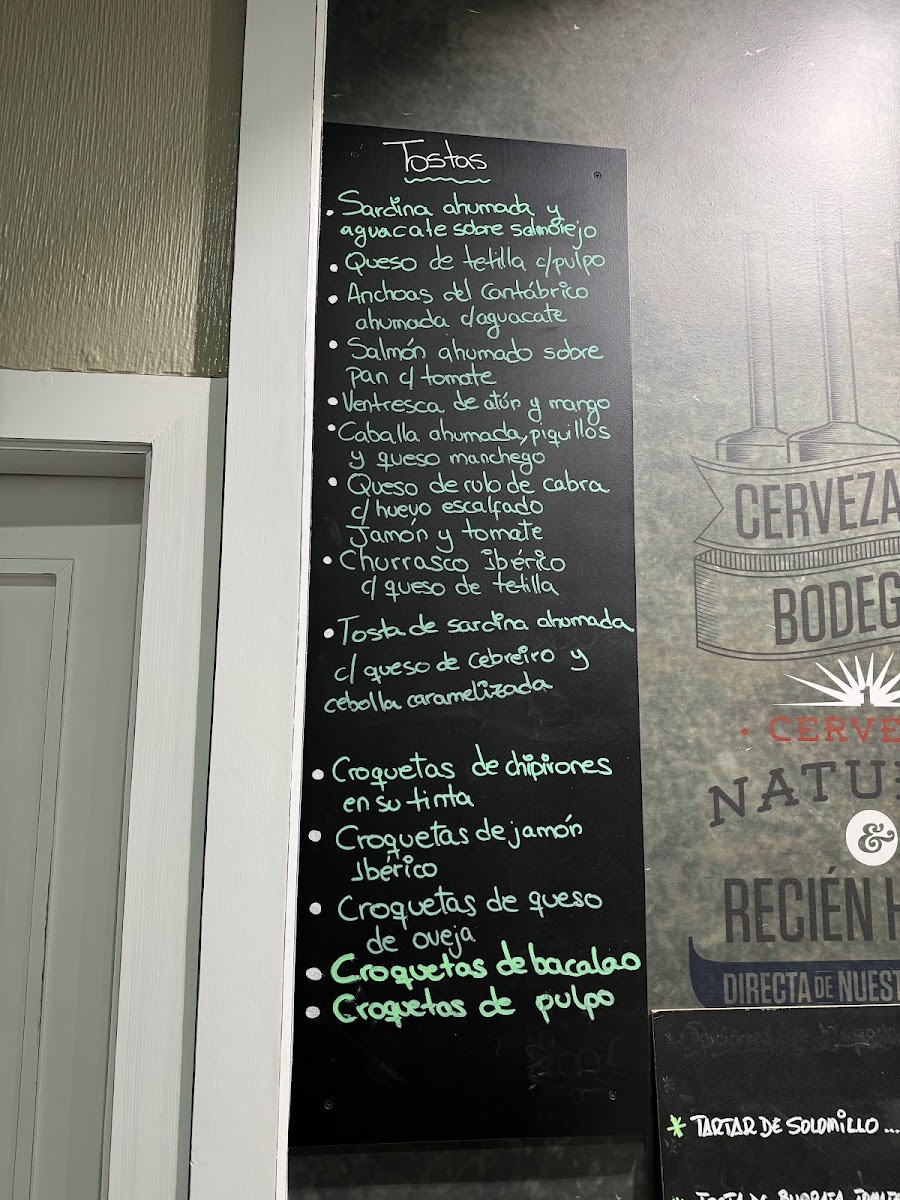 Tostas
• Sardina ahumada y
aguacate sobre salmorejo
• Queso de tetilla c/pulpo
• Anchoas del Cantábrico
ahumada c/aguacate
• Salmón ahumado sobre
pan c/ tomate
• Ventresca de atún y mango
• Caballa ahumada, piquillos
y queso manchego
• Queso de rulo de cabra
c/ huevo escalfado
Jamón y tomate
• Churrasco ibérico
c/ queso de tetilla
• Tosta de sardina ahumada
c/ queso de Cebreiro y
cebolla caramelizada
• Croquetas de chipirones
en su tinta
• Croquetas de jamón
Ibérico
• Croquetas de queso
de oveja
• Croquetas de bacalao
• Croquetas de pulpo
CERVEZA
BODEG
• CERVE
NATU
&
RECIÉN H
DIRECTA DE NUEST
* TARTAR DE SOLOMILLO ...